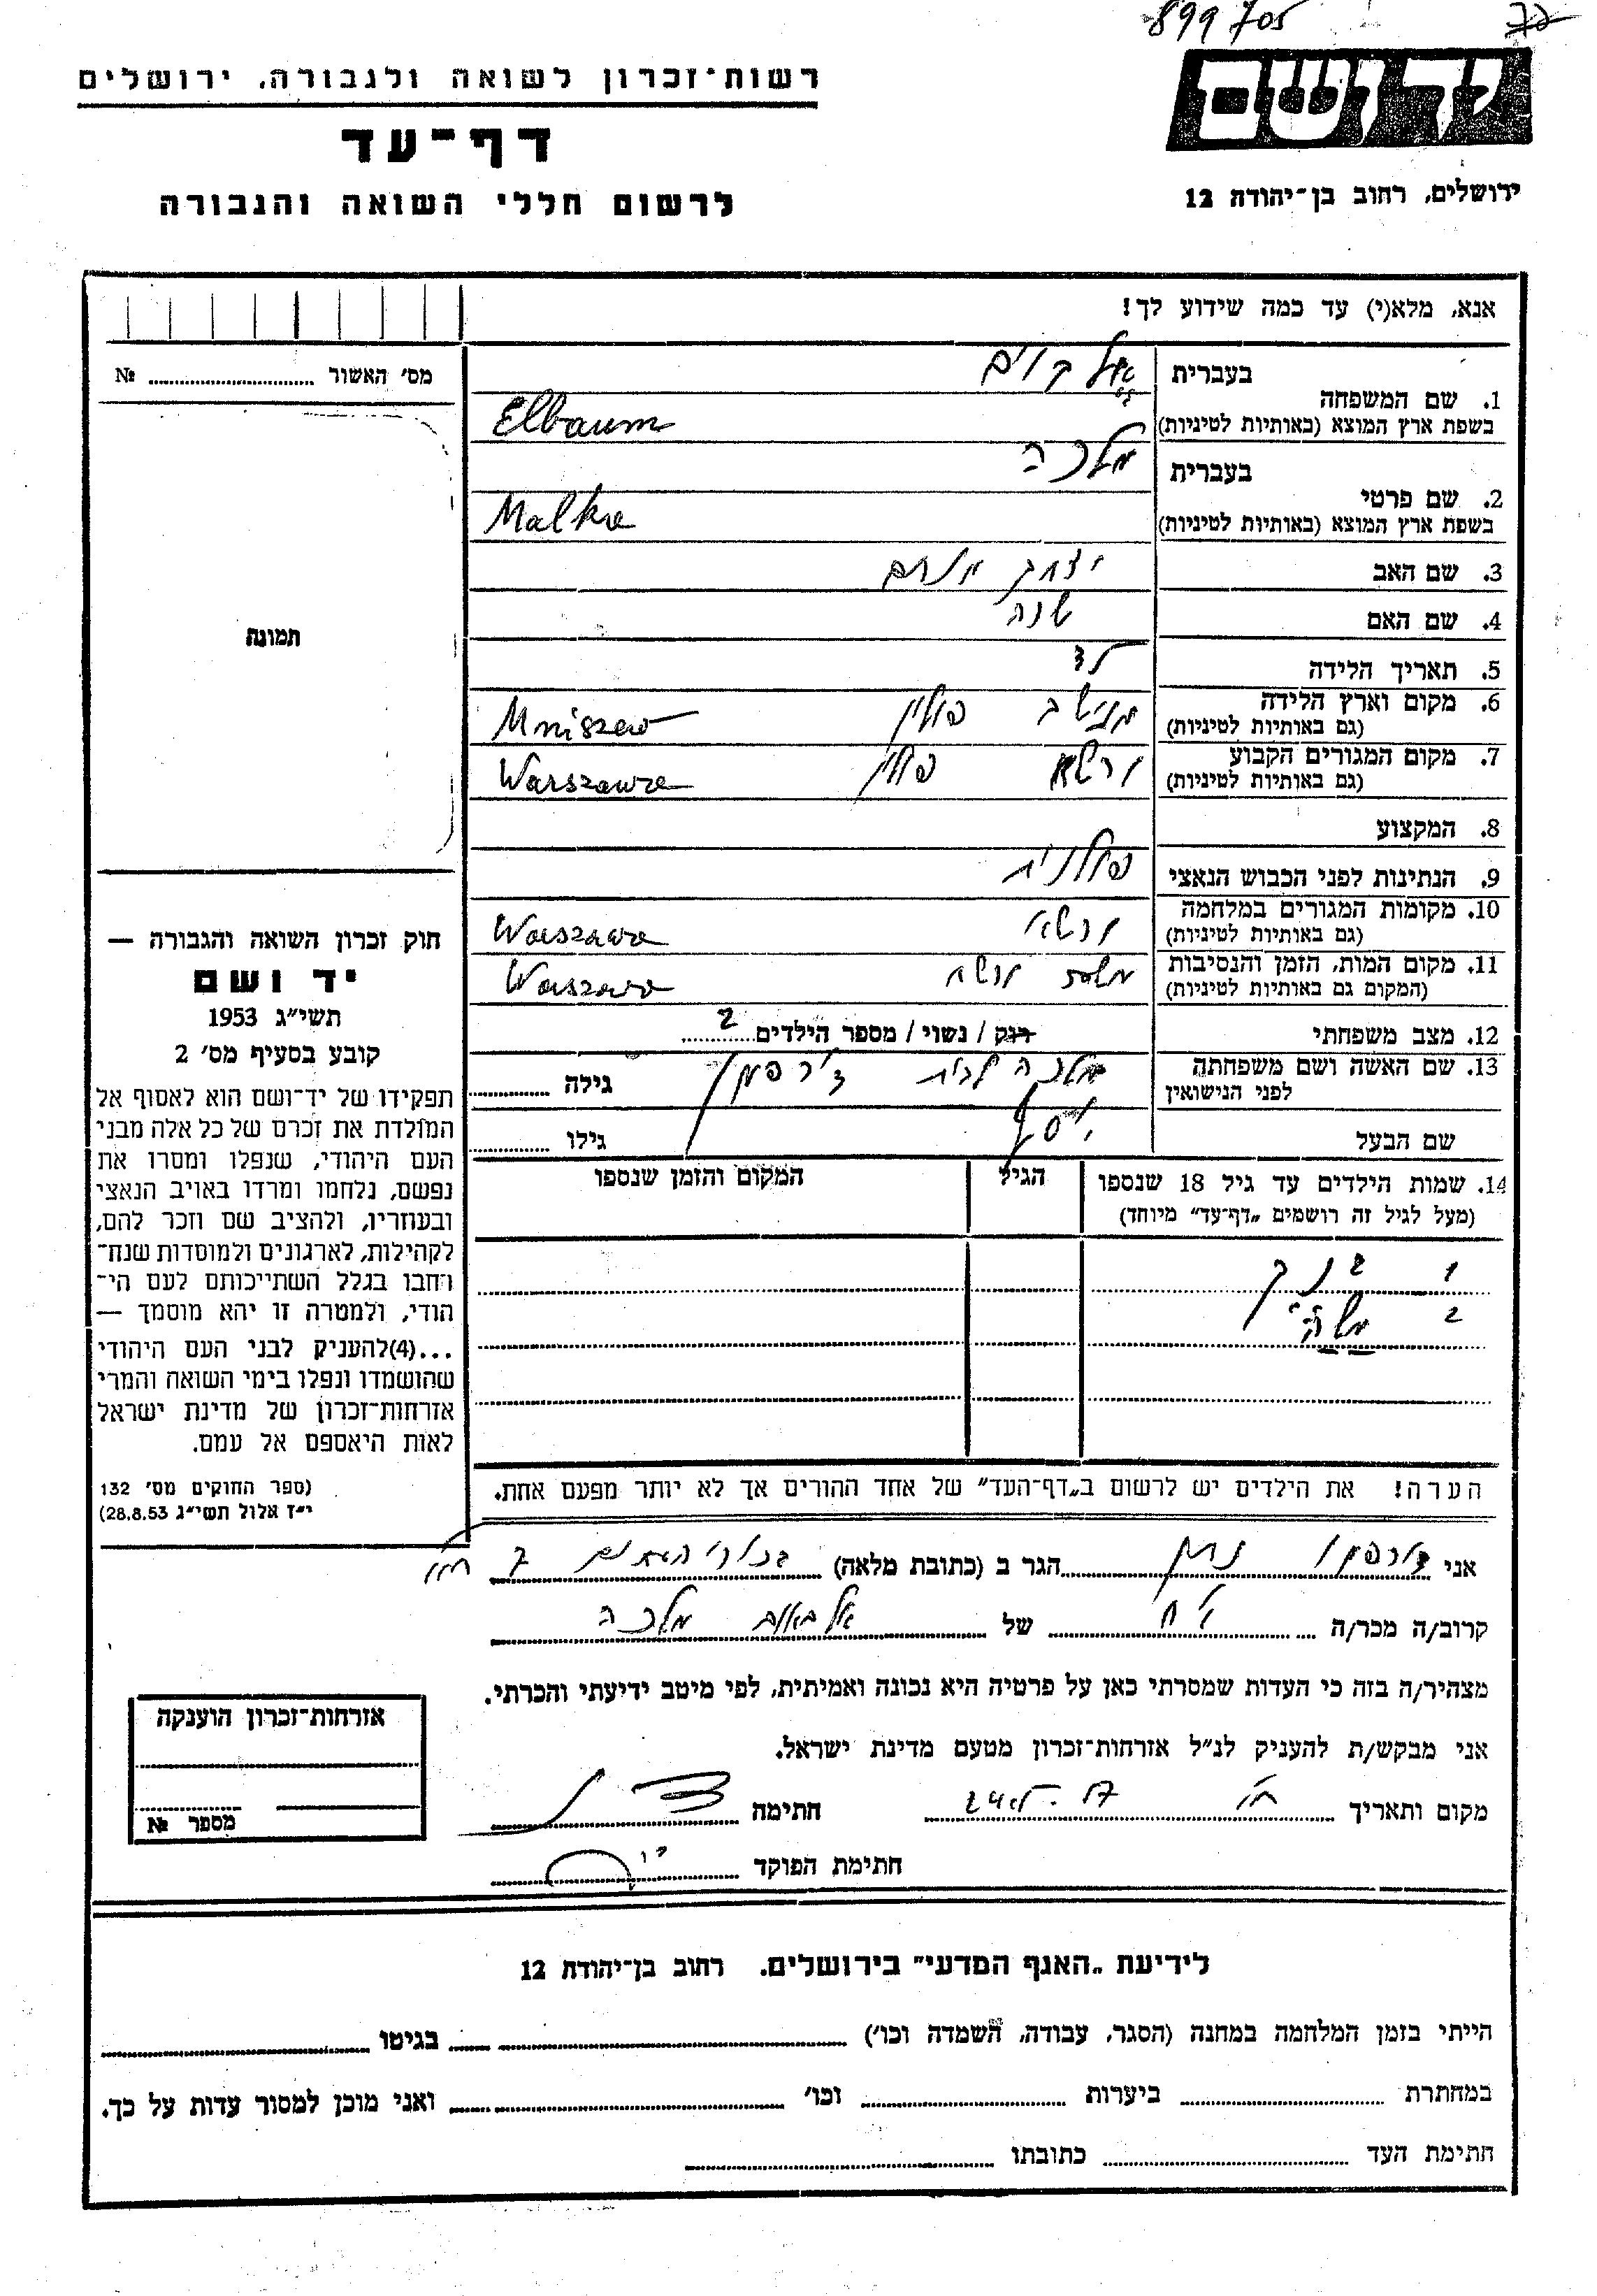 899705
72
יד ושם
ירושלים, רחוב בן־יהודה 12
רשות־זכרון לשואה ולגבורה, ירושלים
דף־עד
לרשום חללי השואה והגבורה
אנא, מלא(י) עד כמה שידוע לך!
מס׳ האשור ........ №
תמונה
חוק זכרון השואה והגבורה —
יד ושם
תשי״ג 1953
קובע בסעיף מס׳ 2
תפקידו של יד־ושם הוא לאסוף אל
המולדת את זכרם של כל אלה מבני
העם היהודי, שנפלו ומסרו את
נפשם, נלחמו ומרדו באויב הנאצי
ובעוזריו, ולהציב שם וזכר להם,
לקהילות, לארגונים ולמוסדות שנח־
רחבו בגלל השתייכותם לעם הי־
הודי, ולמטרה זו יהא מוסמך —
...(4)להעניק לבני העם היהודי
שהושמדו ונפלו בימי השואה והמרי
אזרחות־זכרון של מדינת ישראל
לאות היאספם אל עמם.
(ספר החוקים מס׳ 132
י״ז אלול תשי״ג 28.8.53)
1. שם המשפחה
בעברית
בשפת ארץ המוצא (באותיות לטיניות) Elbaum
2. שם פרטי
בעברית מלכה
בשפת ארץ המוצא (באותיות לטיניות) Malka
3. שם האב יצחק
4. שם האם
5. תאריך הלידה
6. מקום וארץ הלידה פולין Mniszew
(גם באותיות לטיניות)
7. מקום המגורים הקבוע ורשא פולין Warszawa
(גם באותיות לטיניות)
8. המקצוע
9. הנתינות לפני הכבוש הנאצי פולנית
10. מקומות המגורים במלחמה ורשא Warszawa
(גם באותיות לטיניות)
11. מקום המות, הזמן והנסיבות ורשא Warszawa
(המקום גם באותיות לטיניות)
12. מצב משפחתי רוק / נשוי / מספר הילדים 2
13. שם האשה ושם משפחתה מלכה לבית גילה
לפני הנישואין
שם הבעל יוסף גילו
14. שמות הילדים עד גיל 18 שנספו הגיל המקום והזמן שנספו
(מעל לגיל זה רושמים „דף־עד״ מיוחד)
1
2 משה
הערה! את הילדים יש לרשום ב„דף־העד״ של אחד ההורים אך לא יותר מפעם אחת.
אני נתן הגר ב (כתובת מלאה)
קרוב/ה מכר/ה אח של אלבאום מלכה
מצהיר/ה בזה כי העדות שמסרתי כאן על פרטיה היא נכונה ואמיתית, לפי מיטב ידיעתי והכרתי.
אני מבקש/ת להעניק לנ״ל אזרחות־זכרון מטעם מדינת ישראל.
מקום ותאריך חתימה
חתימת הפוקד
אזרחות־זכרון הוענקה
מספר №
לידיעת „האגף המדעי״ בירושלים. רחוב בן־יהודה 12
הייתי בזמן המלחמה במחנה (הסגר, עבודה, השמדה וכו׳) בגיטו
במחתרת ביערות וכו׳ ואני מוכן למסור עדות על כך.
חתימת העד כתובתו